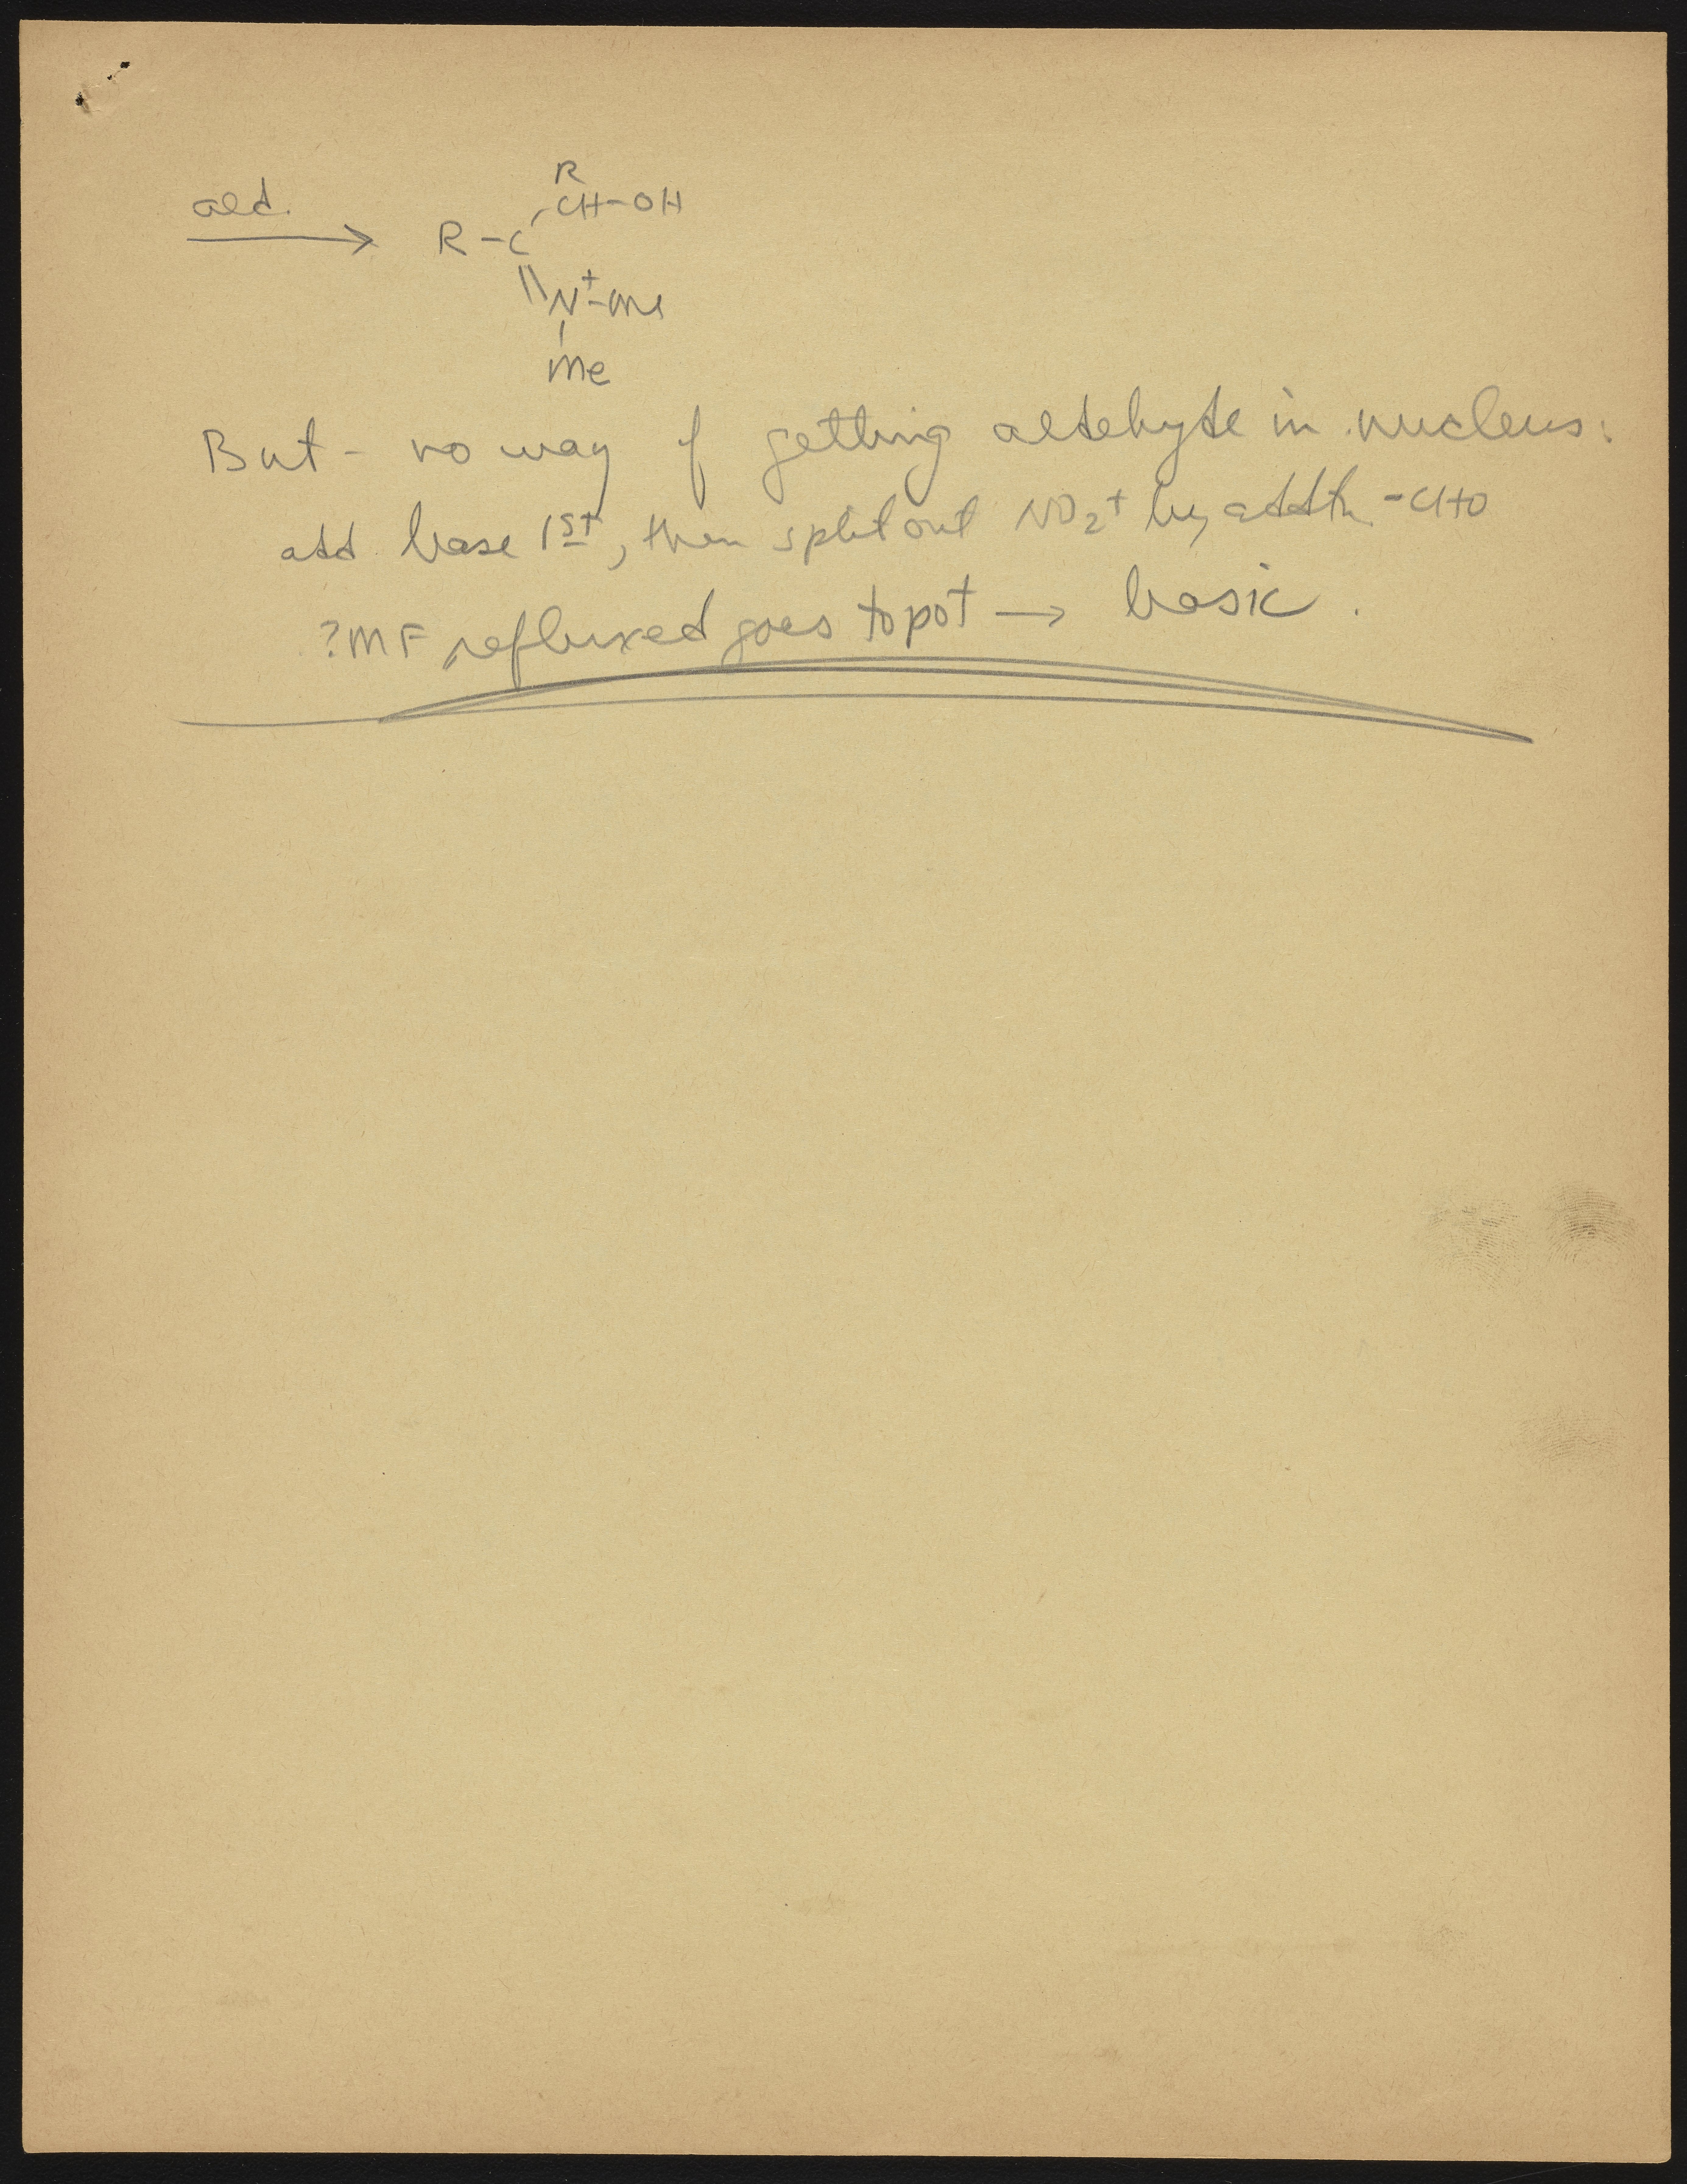 ald.
R
CH-OH
R-C
N+-Me
Me
But - no way of getting aldehyde in nucleus:
add base 1st, then split out NO2+ by addtn -CHO
?MF refluxed goes to pot → basic.